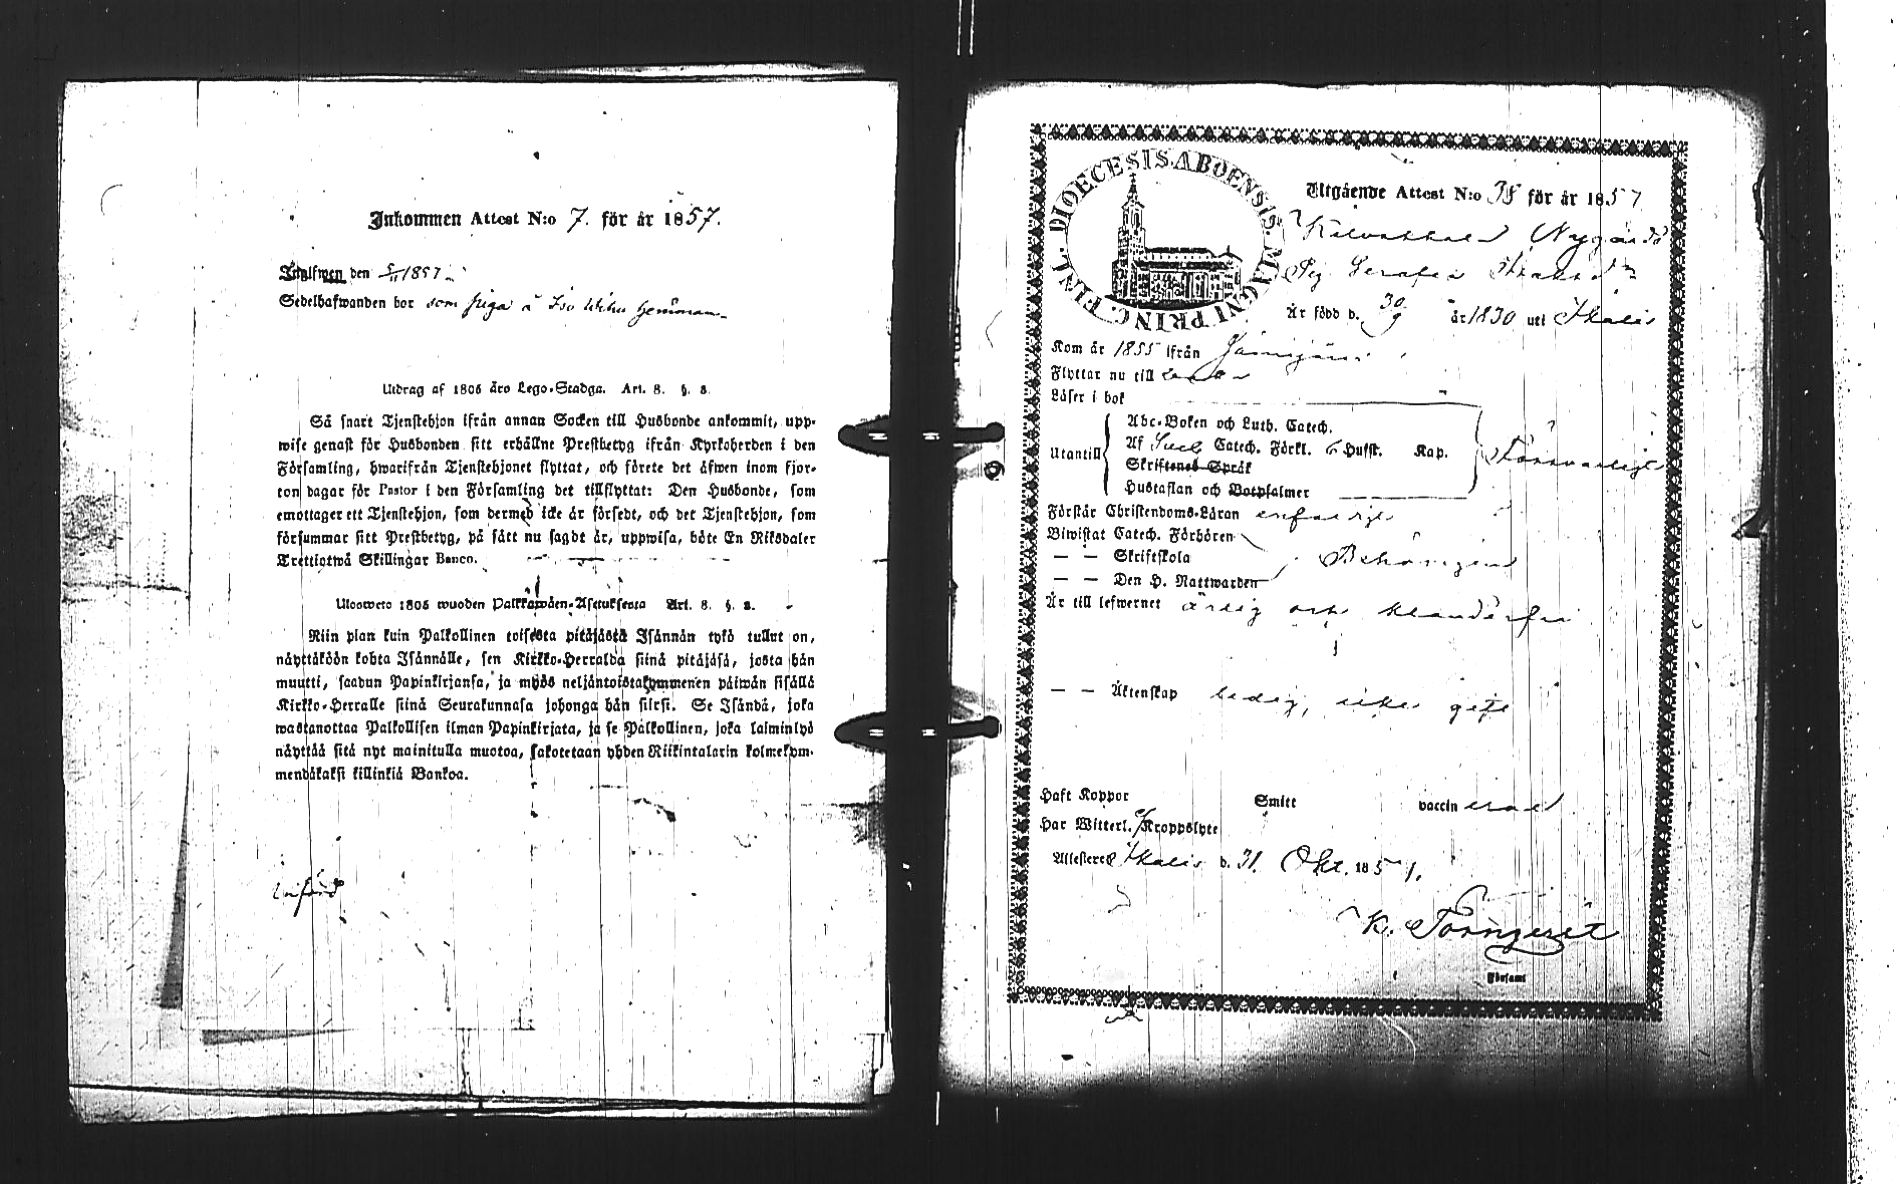 Inkommen Attest N:o 7. för år 1857.
den 5/11 1857
Sedelhafwanden bor som piga å Iso hemman
Utdrag af 1805 års Lego-Stadga. Art. 8. §. 8.
Så snart Tjenstehjon ifrån annan Socken till Husbonde ankommit, upp-
wise genast för Husbonden sitt erhållne Prestbetyg ifrån Kyrkoherden i den
Församling, hwarifrån Tjenstehjonet flyttat, och förete det äfwen inom fjor-
ton dagar för Pastor i den Församling det tillflyttat: Den Husbonde, som
emottager ett Tjenstehjon, som dermed icke är försedt, och det Tjenstehjon, som
försummar sitt Prestbetyg, på sätt nu sagdt är, uppwisa, böte En Riksdaler
Trettiotwå Skillingar Banco.
Ulosweto 1805 wuoden Palkkawäen-Asetuksesta Art. 8. §. 8.
Niin pian kuin Palkollinen toisesta pitäjästä Isännän tykö tullut on,
näyttäköön kohta Isännälle, sen Kirkko-Herralda siinä pitäjäsä, josta hän
muutti, saadun Papinkirjansa, ja myös neljäntoistakymmenen päiwän sisällä
Kirkko-Herralle siinä Seurakunnasa johonga hän siirsi. Se Isändä, joka
wastanottaa Palkollisen ilman Papinkirjata, ja se Palkollinen, joka laiminlyö
näyttää sitä nyt mainitulla muotoa, sakotetaan yhden Riikintalarin kolmekym-
mendäkaksi killinkiä Bankoa.
införd
FINL. DIOECESIS ABOENSIS. MAGNI PRINC.
Utgående Attest N:o 38 för år 1857
Nygårds
Pig Serafia
Är född d. 30/9 år 1830 uti Ikalis
Kom år 1855 ifrån
Flyttar nu till
Läser i bok
Abc-Boken och Luth. Catech.
Utantill Af Sveb Catech. Förkl. 6 Hufst. Kap. Försvarligt
Skriftenes Språk
Hustaflan och Botpsalmer
Förstår Christendoms-Läran enfaldigt
Biwistat Catech. Förhören
— — Skriftskola Behörigen
— — Den H. Nattwarden
Är till lefwernet ärlig och klanderfri
— — Äktenskap ledig, icke gift
Haft Koppor Smitt vaccin erad
Har Witterl. Kroppslyte
Attesterer Ikalis d. 31. Okt. 1857.
K. Törngvist
Församl